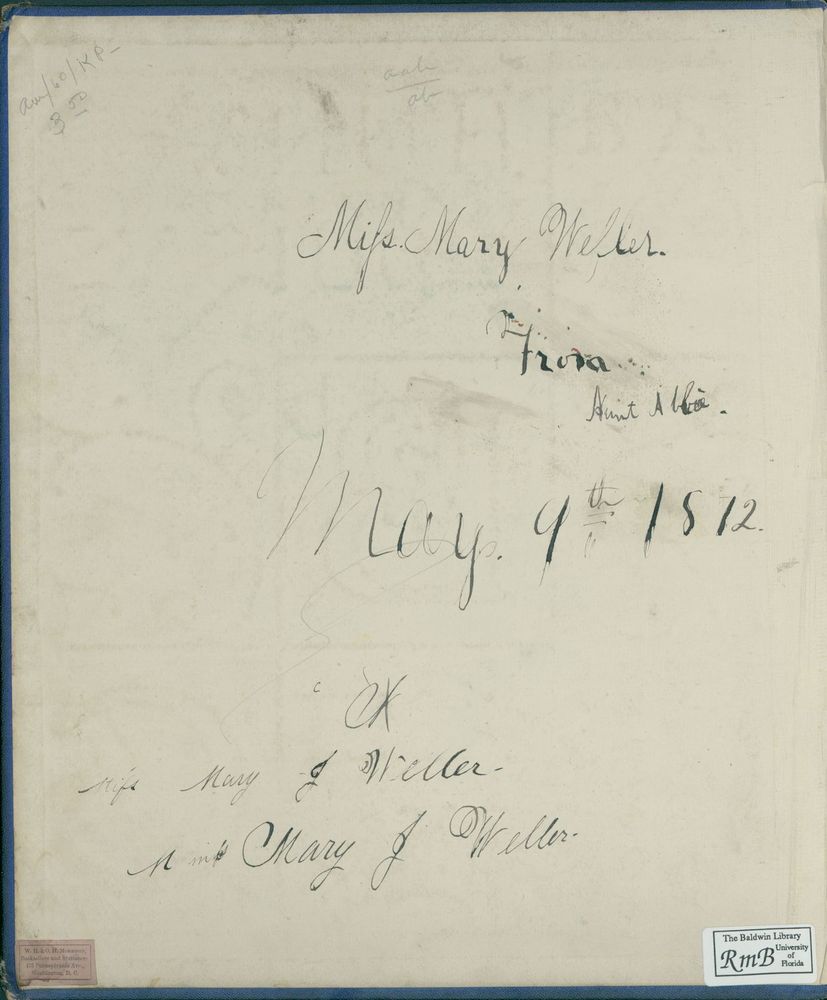 aab
ab
3 00
Miss. Mary Weller.
From
Aunt Abbie.
May. 9th 1872.
Miss Mary J Weller.
Mary J Weller.
W. H. & O. H. Morrison,
Booksellers and Stationers
475 Pennsylvania Ave.,
Washington, D. C.
The Baldwin Library
RmB University
of
Florida